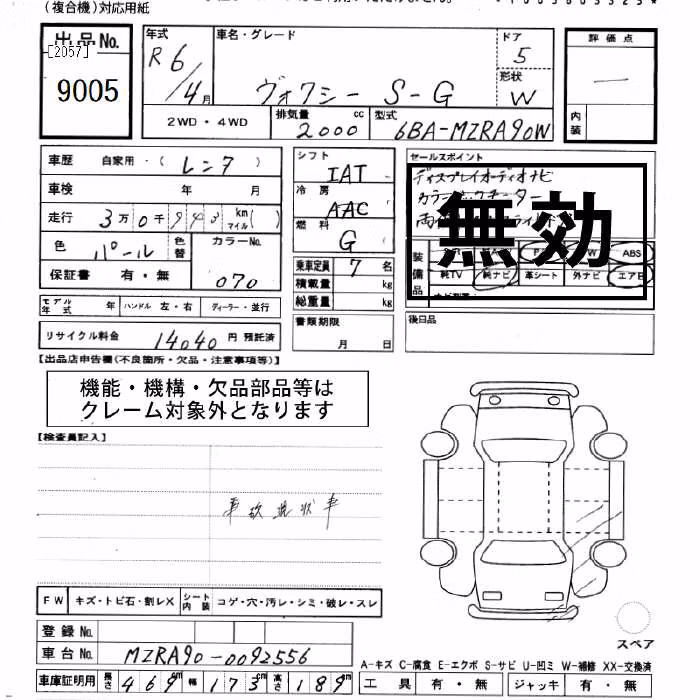 (複合機)対応用紙
出品No. [2057] 9005
年式 R6/4月
車名・グレード ヴォクシー S-G
ドア 5
形状 W
評価点 —
内装
2WD・4WD
排気量 2000 cc
型式 6BA-MZRA90W
車歴 自家用・(レンタ)
車検 年 月
走行 3万0千 km マイル( )
色 パール 色替
カラーNo. 070
保証書 有・無
モデル年式 年 ハンドル 左・右 ディーラー・並行
リサイクル料金 14040 円 預託済
シフト IAT
冷房 AAC
燃料 G
乗車定員 7 名
積載量 kg
総重量 kg
書類期限
月 日
セールスポイント
ディスプレイオーディオナビ
無効
装備品 ABS
純TV 純ナビ 革シート 外ナビ エアB
後日品
【出品店申告欄(不良箇所・欠品・注意事項等)】
機能・機構・欠品部品等は
クレーム対象外となります
【検査員記入】
事故現状車
FW キズ・トビ石・割レX シート内装 コゲ・穴・汚レ・シミ・破レ・スレ
登録No.
車台No. MZRA90-0092556
車庫証明用 長さ 469cm 幅 173cm 高さ 189cm
スペア
A-キズ C-腐食 E-エクボ S-サビ U-凹ミ W-補修 XX-交換済
工具 有・無 ジャッキ 有・無